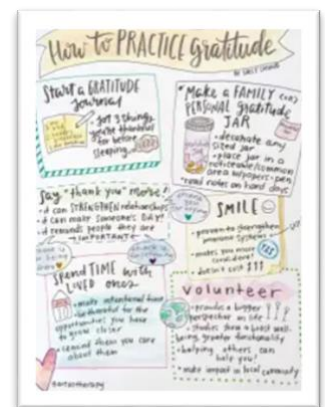 How to PRACTICE gratitude
Start a GRATITUDE
journal
• get 3 things
you're thankful
for before
sleeping
"Make a FAMILY (or)
PERSONAL gratitude
JAR
• decorate any
sized jar
• place jar in a
noticeable/common
area w/papers + pen
• read notes on hard days
Say "thank you" more!
• it can STRENGTHEN relationships
• it can make someone's DAY!
• it reminds people they are
IMPORTANT
SMILE
• proven to strengthen
immune systems
• makes you more
• doesn't cost $$$
YES
Spend TIME with
LOVED ones
• make intentional time
• be thankful for the
opportunities you have
to grow closer
• remind them you care
about them
volunteer
• provides a bigger
perspective on life
• studies show a boost well-
being, greater functionality
• helping others can
help you!
• make impact in local community